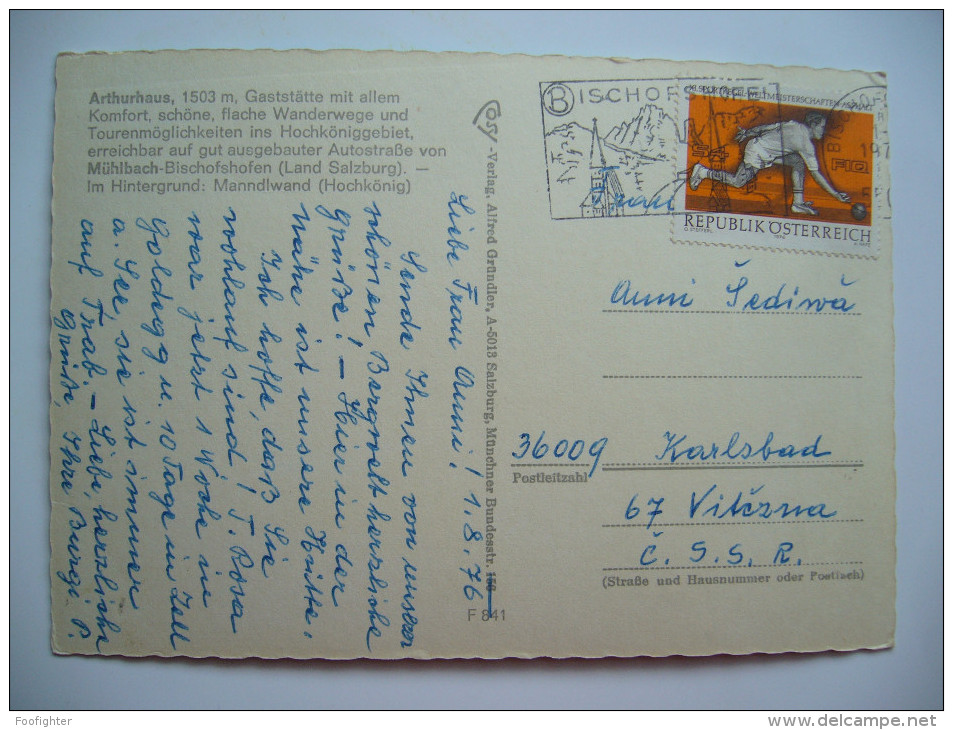 Arthurhaus, 1503 m, Gaststätte mit allem
Komfort, schöne, flache Wanderwege und
Tourenmöglichkeiten ins Hochköniggebiet,
erreichbar auf gut ausgebauter Autostraße von
Mühlbach-Bischofshofen (Land Salzburg). —
Im Hintergrund: Manndlwand (Hochkönig)
Liebe Frau Anni! 1.8.76
Sende Ihnen von unserer
schönen Bergwelt herzliche
Grüße! – Hier in der
Nähe ist unsere Hütte.
Ich hoffe, daß Sie
wohlauf sind! T. Rosa
war jetzt 1 Woche in
Goldegg u. 10 Tage in Zell
a. See, sie ist immer
auf Trab. – Liebe, herzliche
Grüße, Ihre Burgi P.
-Verlag, Alfred Gründler, A-5013 Salzburg, Münchner Bundesstr.
F 841
BISCHOFSHOFEN
REPUBLIK ÖSTERREICH
FIQ
Frau
Anni Šediwá
36009 Karlsbad
Postleitzahl
67 Vitězna
Č. S. S. R.
(Straße und Hausnummer oder Postfach)
Foofighter
www.delcampe.net